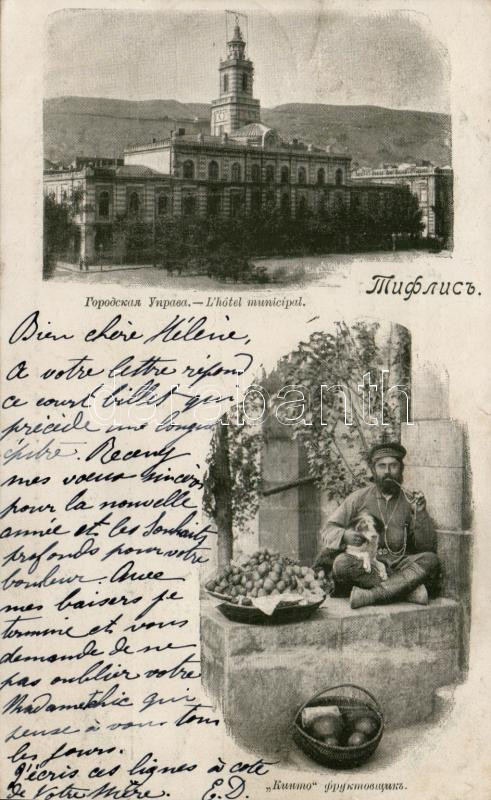 Городская Управа.—L'hôtel municipal.
Тифлисъ.
Bien chère Hélène,
A votre lettre répond
ce court billet qui
précède une longue
épître. Recevez
mes voeux sincères
pour la nouvelle
année et les souhaits
profonds pour votre
bonheur. Avec
mes baisers je
termine et vous
demande de ne
pas oublier votre
qui
pense à vous tous
les jours.
J'écris ces lignes à côté
de votre Mère. E.D.
„Кинто" фруктовщикъ.
darabanth